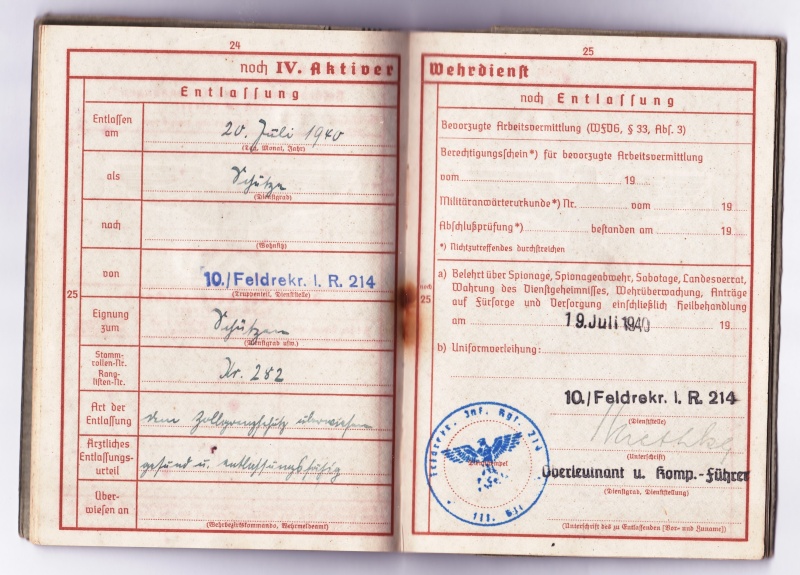 24
noch IV. Aktiver
Entlassung
Entlassen am
20. Juli 1940
(Tag, Monat, Jahr)
als
Schütze
(Dienstgrad)
nach
(Wohnsitz)
von
10./Feldrekr. I. R. 214
(Truppenteil, Dienststelle)
25
Eignung zum
Schützen
(Dienstgrad usw.)
Stamm-
rollen-Nr.
Rang-
listen-Nr.
Nr. 282
Art der Entlassung
dem Zollgrenzschutz überwiesen
Ärztliches Entlassungs-
urteil
gesund u. entlassungsfähig
Über-
wiesen an
(Wehrbezirkskommando, Wehrmeldeamt)
25
Wehrdienst
noch Entlassung
Bevorzugte Arbeitsvermittlung (WFVG, § 33, Abs. 3)
Berechtigungsschein*) für bevorzugte Arbeitsvermittlung
vom 19
Militäranwärterurkunde*) Nr. vom 19
Abschlußprüfung*) bestanden am 19
*) Nichtzutreffendes durchstreichen
noch
25
a) Belehrt über Spionage, Spionageabwehr, Sabotage, Landesverrat,
Wahrung des Dienstgeheimnisses, Wehrüberwachung, Anträge
auf Fürsorge und Versorgung einschließlich Heilbehandlung
am 19. Juli 1940 19
b) Uniformverleihung:
10./Feldrekr. I. R. 214
(Dienststelle)
(Unterschrift)
Oberleutnant u. Komp.-Führer
(Dienstgrad, Dienststellung)
(Unterschrift des zu Entlassenden [Vor- und Zuname])
Feldrekr. Inf. Rgt. 214
III. Btl.